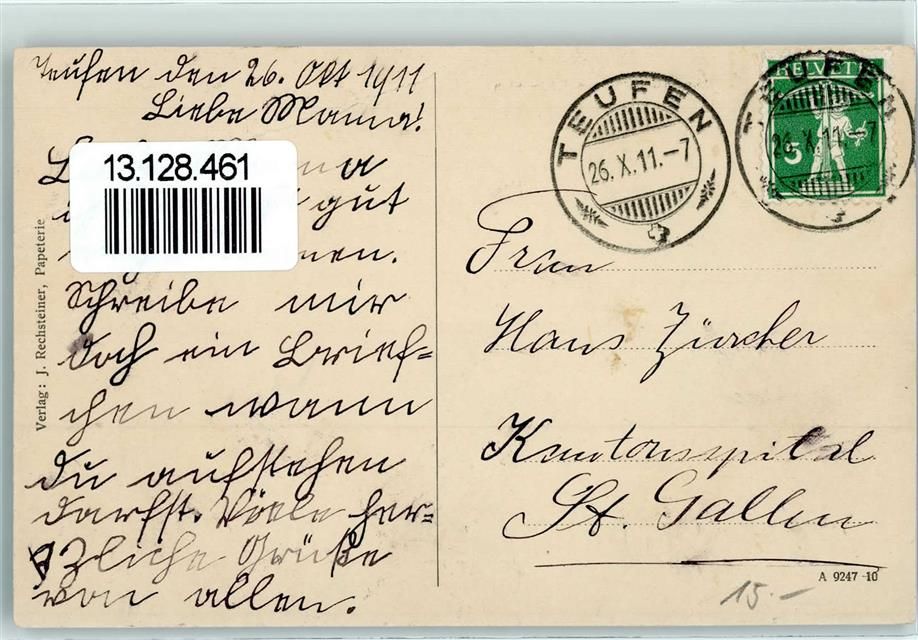 Teufen den 26. Okt 1911
Liebe Mama!
13.128.461
gut
nen.
Schreibe mir
doch ein Brief=
chen wann
du aufstehen
darfst. Viele her=
zliche Grüße
von allen.
Verlag: J. Rechsteiner, Papeterie
TEUFEN
26. X. 11.-7
HELVETIA
5
TEUFEN
26. X. 11.-7
Frau
Hans Zürcher
Kantonsspital
St. Gallen
A 9247 10
15.-